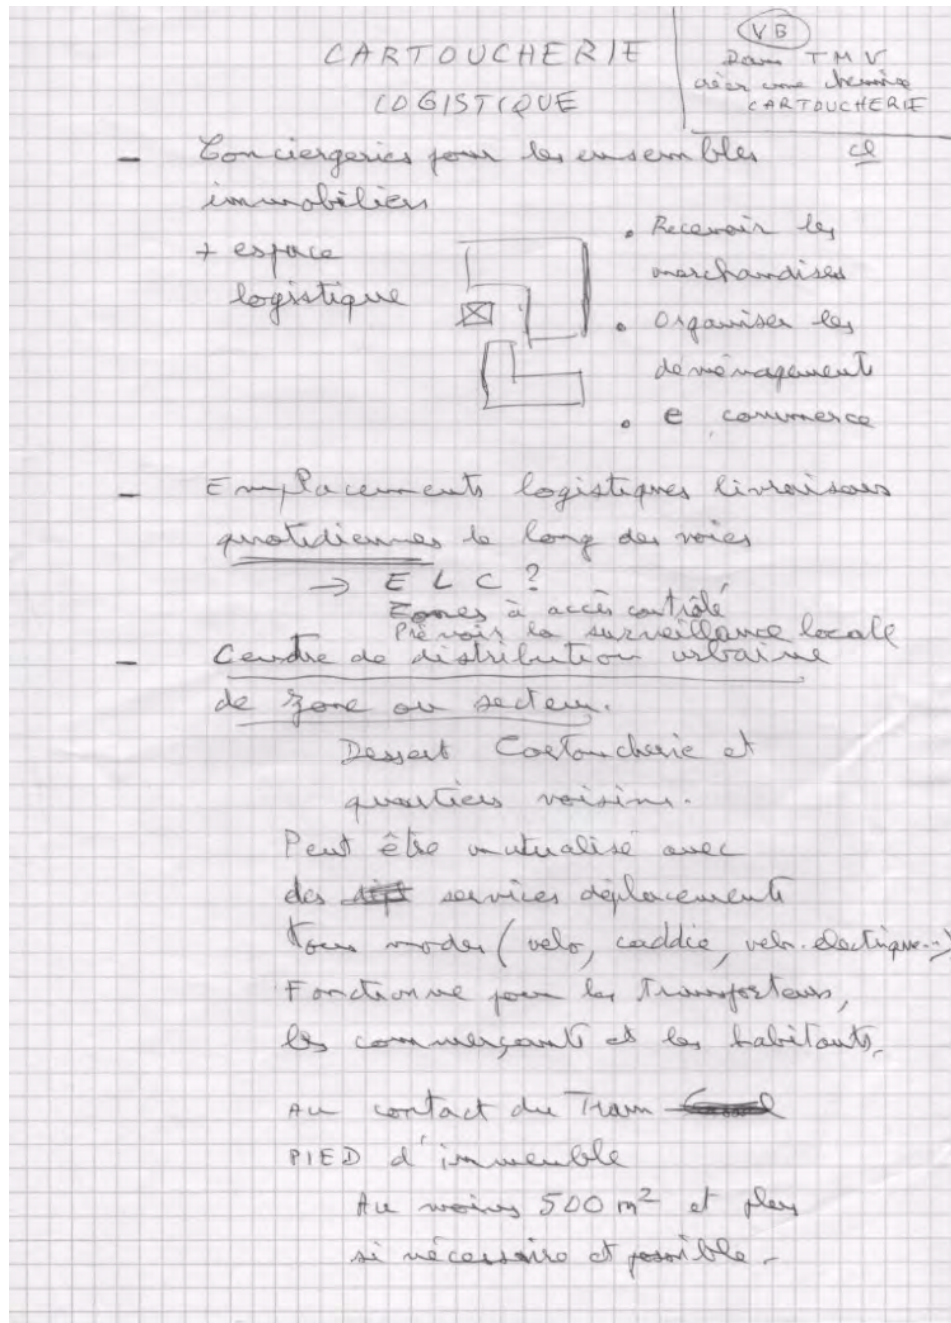 CARTOUCHERIE
LOGISTIQUE
VB
Dans TMV
créer une chemise
CARTOUCHERIE
- Conciergeries pour les ensembles
immobiliers
+ espace
logistique
• Recevoir les
marchandises
• Organiser les
déménagements
• e commerce
- Emplacements logistiques livraisons
quotidiennes le long des voies
→ E L C ?
Zones à accès contrôlé
Prévoir la surveillance locale
- Centre de distribution urbaine
de zone ou secteur.
Dessert Cartoucherie et
quartiers voisins.
Peut être mutualisé avec
des services déplacements
tous modes (velo, caddie, velo electrique...)
Fonctionne pour les transporteurs,
les commerçants et les habitants.
Au contact du Tram
PIED d'immeuble
Au moins 500 m² et plus
si nécessaire et possible.